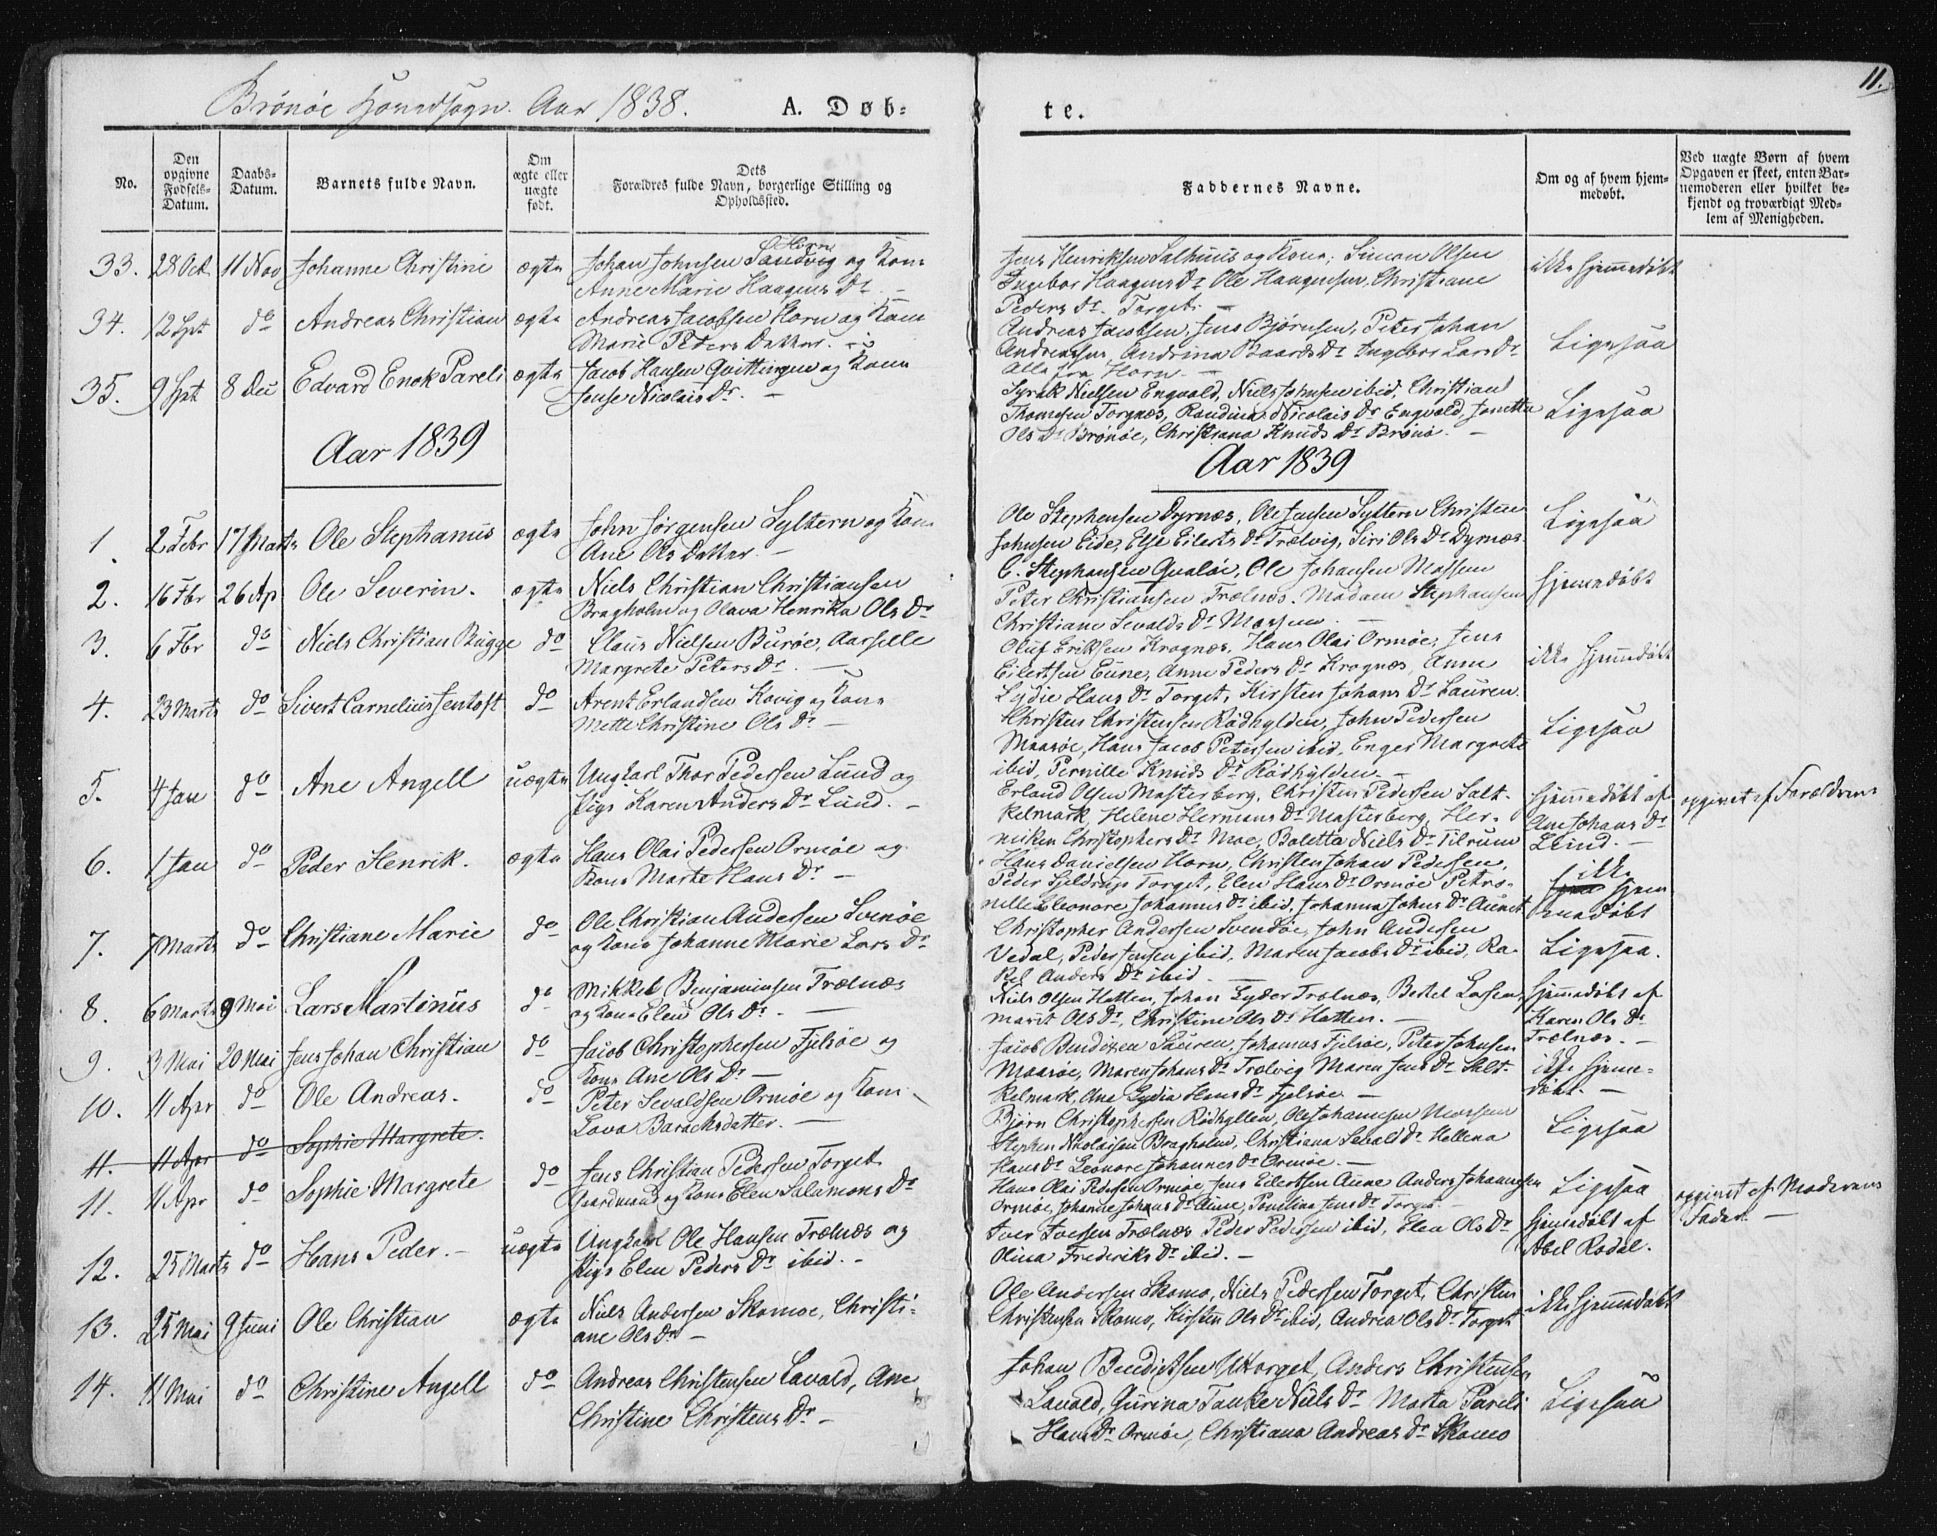 Brønøe Hovedsogn. Aar 1838.
A. Døb-
te.
11.
No.
Den opgivne Fødsels-Datum.
Daabs-Datum.
Barnets fulde Navn.
Om ægte eller uægte født.
Dets Forældres fulde Navn, borgerlige Stilling og Opholdssted.
Faddernes Navne.
Om og af hvem hjem-medøbt.
Ved uægte Børn af hvem Opgaven er skeet, enten Bar-nemoderen eller hvilket be-kjendt og troværdigt Med-lem af Menigheden.
33. 28 Oct. 11 Nov Johanne Christine ægte
Horn
Johan Johnsen Sandvig og Kone
Anne Marie Haagens Dr. –
Jens Henriksen Salhuus og Kone, Simon Olsen
Ingebor Haagens Dr Ole Haagensen, Christiane
Peders Dr. Torget. –
ikke hjemmedøbt
34. 12 Spt do Andreas Christian ægte
Andreas Jacobsen Horn og Kone
Marie Peders Datter.
Andreas Jacobsen, Jens Bjørnsen, Peter Johan
Andreassen, Andrina Baards Dr Ingebor Lars Dr
Alle fra Horn. –
Ligesaa
35. 9 Spt 8 Dec Edvard Enok Pareli ægte
Jacob Hansen Qvittingen og Kone
Jense Nicolais Dr. –
Syrak Nielsen Engvold, Niels Johnsen ibid, Christian
Thomesen Torgnæs, Randina Nicolais Dr Engvold, Jonetta
Ols Dr Brønøe, Christiana Knuds Dr Brønø. –
Ligesaa
Aar 1839
Aar 1839
1. 2 Febr 17 Marts Ole Stephanus ægte
John Jørgensen Syltern og Kone
Ane Ols Datter. –
Ole Stephensen Dyrnæs, Ole Jensen Syltern Christen
Johnsen Eide, Else Eilerts Dr Trælvig, Siri Ols Dr Dyrnæs
Ligesaa
2. 16 Fbr 26 Ap Ole Severin. ægte
Niels Christian Christiansen
Bragholm og Olava Henrika Ols Dr
C. Stephansen Qualøe, Ole Johansen Mossem
Peter Christiansen Trælnæs. Madam Stephansen
Christiane Sevalds Dr Mossem. –
hjemmedøbt
3. 6 Fbr do Niels Christian Bugge do
Claus Nielsen Burøe, Aarselle
Margrete Peters Dr. –
Oluf Eriksen Krognæs, Hans Olai Ormøe, Jens
Eilertsen Eune, Anne Peders Dr Krognæs, Anne
Lydie Hans Dr Torget, Kirsten Johans Dr Sauren.
ikke hjemmedøbt
4. 23 Marts do Sivert Cornelius Jentoft do
Arent Erlandsen Kovig og Kone
Mette Christine Ols Dr –
Christen Christensen Rødhylden, John Pedersen
Maasøe, Hans Jacob Petersen ibid, Enger Margrete
ibid, Pernille Knuds Dr Rødhylden. –
Ligesaa
5. 4 Jan do Ane Angell uægte
Ungkarl Thor Pedersen Lund og
Pige Karen Anders Dr Lund. –
Erland Olsen Mosterberg, Christen Pedersen Salt-
kelmark, Helene Hermans Dr Masterberg, Her-
miken Christophers Dr Moe, Boletta Niels Dr Tilrum
hjemmedøbt af
Ane Johans Dr
Lund. –
opgivet af Forældrene
6. 1 Jan do Peder Henrik. ægte
Hans Olai Pedersen Ormøe og
Kone Marte Hans Dr –
Hans Danielsen Horn, Christen Johan Pedersen,
Peder Hildrup Torget, Elen Hans Dr Ormøe Petro-
nille Eleonore Johannes Dr ibid, Johanna Johns Dr Aunet
ikke
hjem
medøbt
7. 7 Marts do Christiane Marie do
Ole Christian Andersen Svenøe
og Kone Johanne Marie Lars Dr
Christopher Andersen Svendøe, John Andersen
Vedal, Peder Jensen ibid, Maren Jacobs Dr ibid, Ra-
kel Anders Dr ibid –
Ligesaa.
8. 6 Marts 9 Mai Lars Martinus do
Mikkel Benjaminsen Trælnæs
og Kone Elen Ols Dr. –
Niels Olsen Hatten, Johan Lyder Trælnæs, Bertel Larsen,
Marit Ols Dr, Christine Ols Dr Hatten. –
hjemmedøbt af
Karen Ols Dr
Trælnæs. –
9. 3 Mai 20 Mai Jens Johan Christian do
Jacob Christophersen Fjelsøe og
Kone Ane Ols Dr –
Jacob Bendixen Sauren, Johannes Fjelsøe, Peter Johnsen
Maasøe, Maren Johans Dr Trælvig Maren Jens Dr Salt-
kelmark, Ane Lydia Hans Dr Fjelsøe –
ikke hjemme-
døbt. –
10. 11 Apr do Ole Andreas. do
Peter Sevaldsen Ormøe og Kone
Lova Barachsdatter. –
Bjørn Christophersen Rødhyllen, Ole Johannesen Mossem
Stephen Nikolaisen Bragholm, Christiana Sevald Dr Hellena
Hans Dr Leonore Johannes Dr Ormøe. –
Ligesaa
11. 11 Apr do Sophie Margrete.
11. 11 Apr do Sophie Margrete do
Jens Christian Pedersen Torget
Gaardmand og Kone Elen Salamons Dr
Hans Olai Pedersen Ormøe, Jens Eilertsen Aune Anders Johannesen
Ormøe, Johanne Johans Dr Aune, Paulina Jens Dr Torget
Ligesaa
12. 25 Marts do Hans Peder. – uægte
Ungkarl Ole Hansen Trælnæs og
Pige Elen Peders Dr ibid. –
Iver Iversen Trælnæs Peder Pedersen ibid, Elen Ols Dr
Olina Frederiks Dr ibid. –
hjemmedøbt af
Abel Rodal.
opgivet af Moderens
Fader. –
13. 25 Mai 9 Juni Ole Christian ægte
Niels Andersen Skomoe, Christi-
ane Ols Dr –
Ole Andersen Skomo, Niels Pedersen Torget, Christen
Christensen Skomo, Kirsten Ols Dr ibid, Andrea Ols Dr Torget
ikke hjemmedøbt
14. 11 Mai do Christine Angell do
Andreas Christensen Lavold, Ane
Christine Christens Dr –
Johan Benedictsen Uttorget, Anders Christensen
Lavold, Gurina Tanke Niels Dr Marta Pareli
Hans Dr Ormøe, Christiana Andreas Dr Skomo
Ligesaa